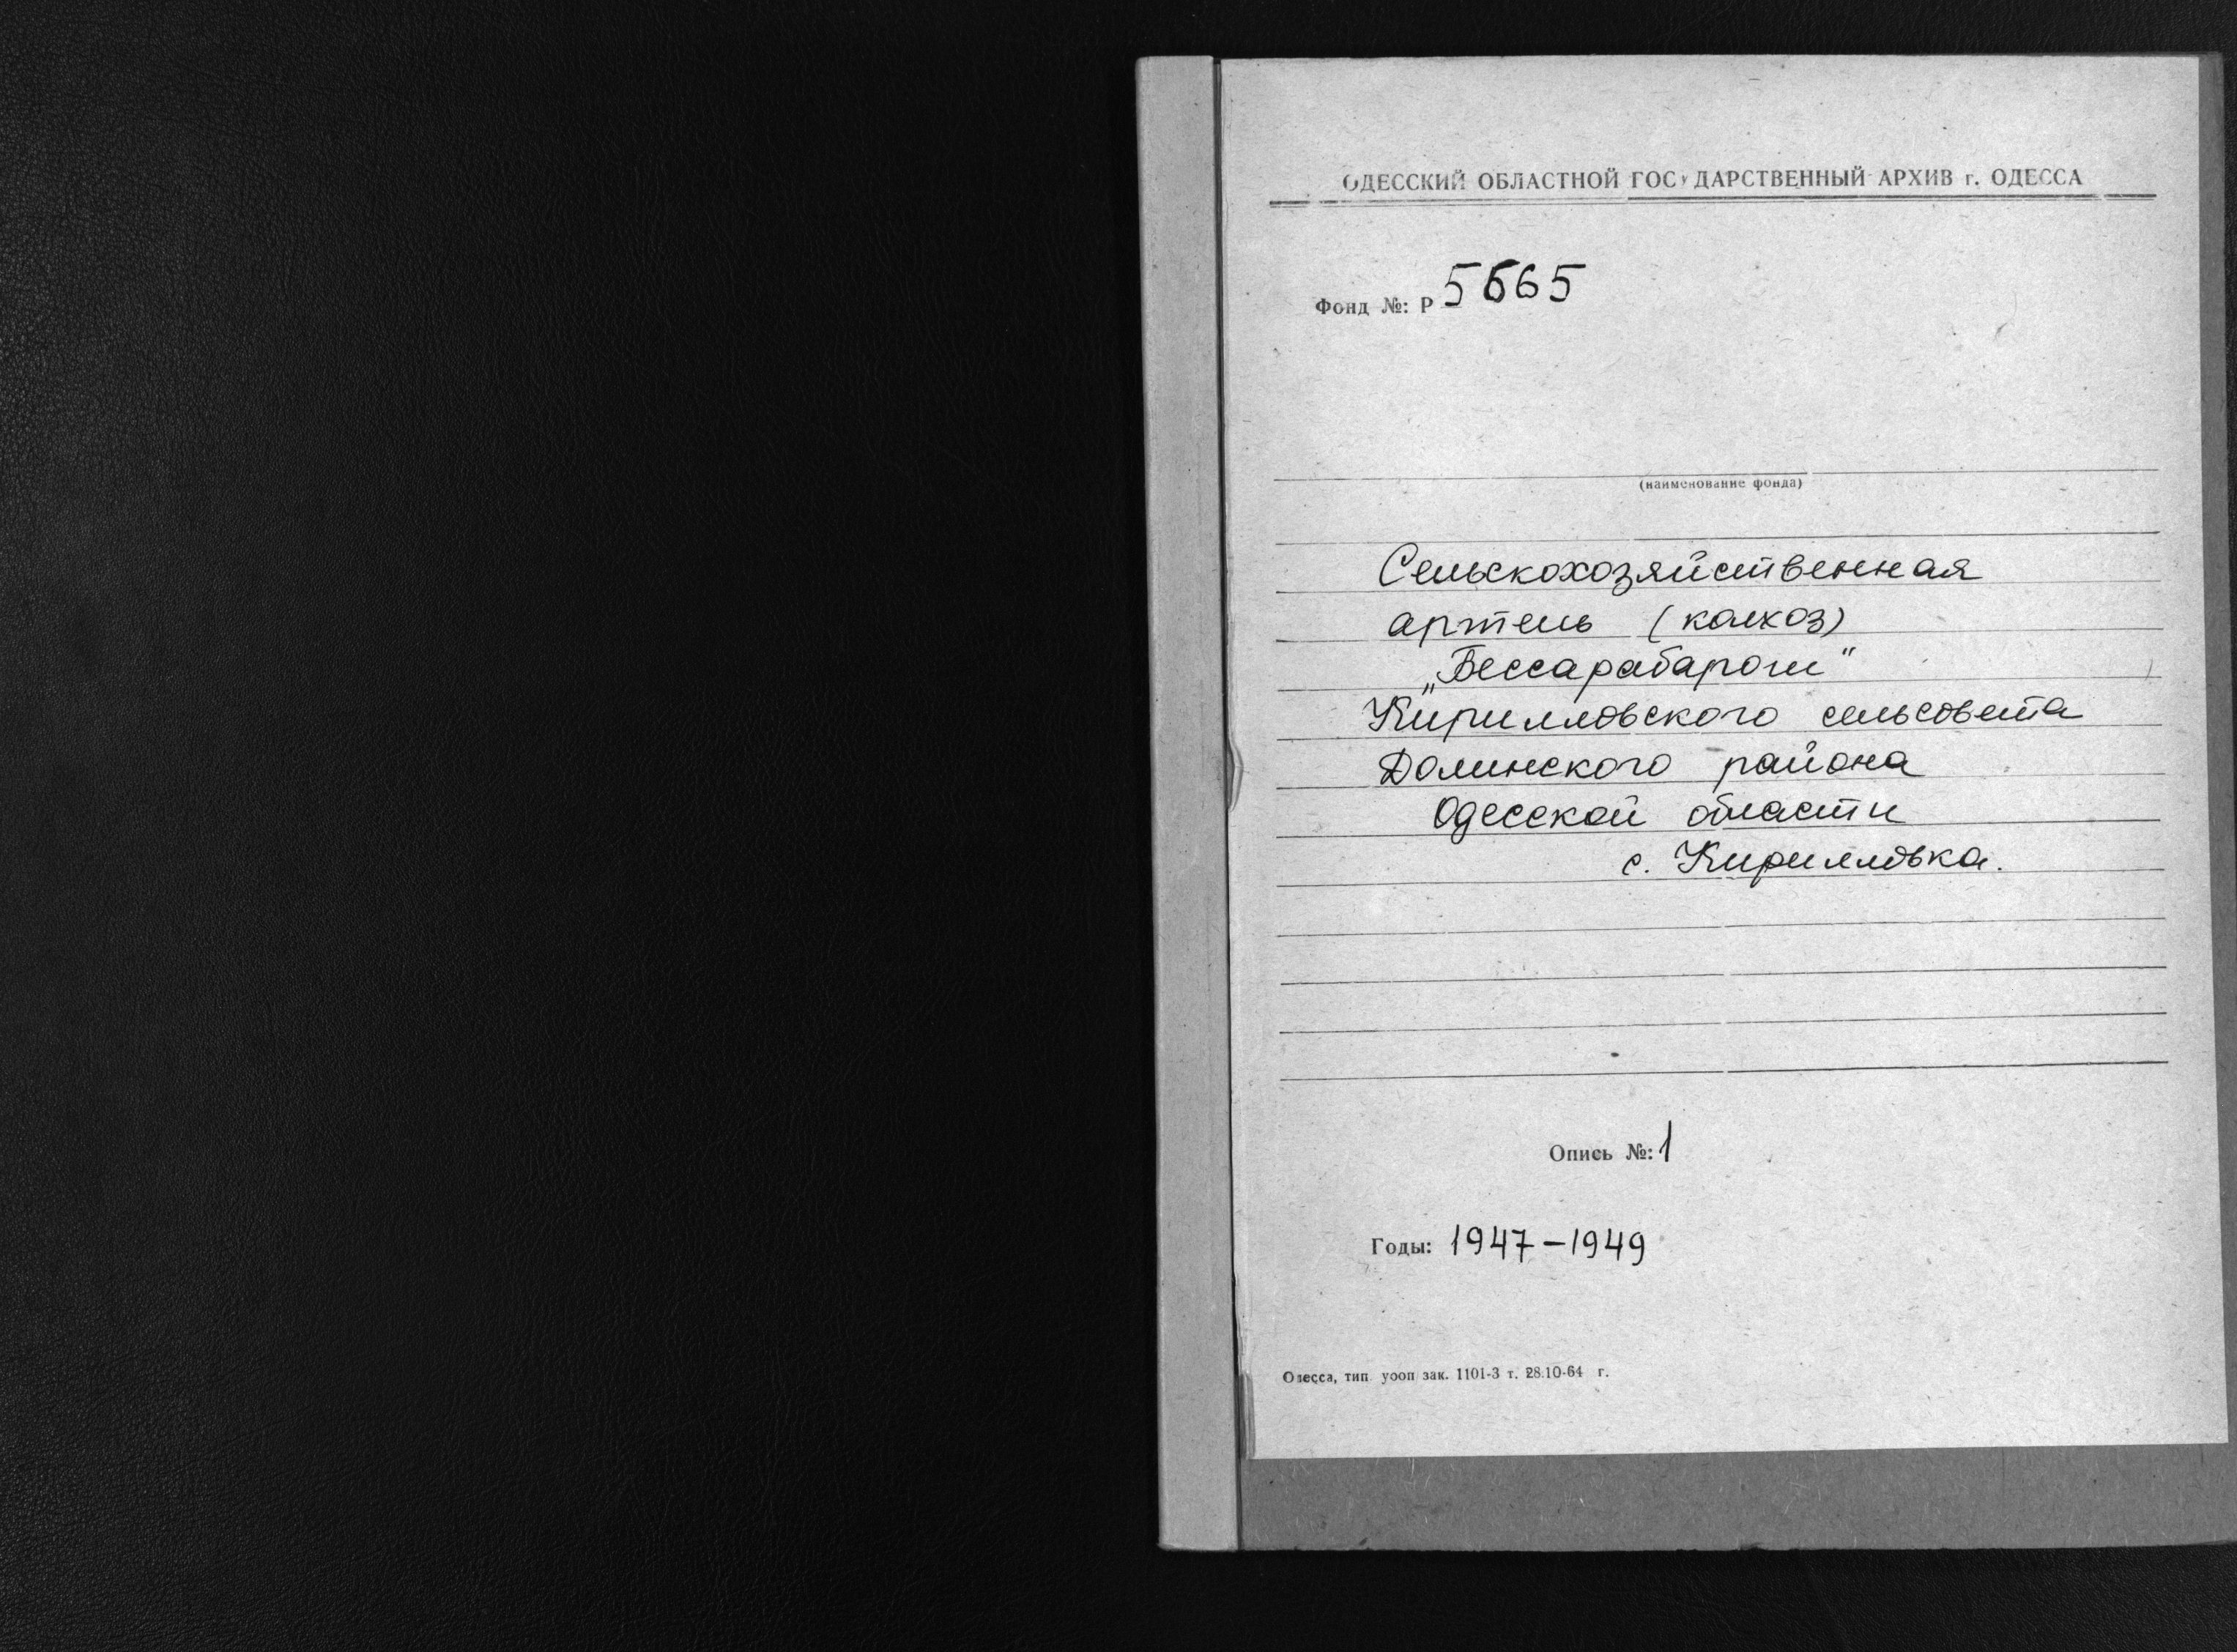 ОДЕССКИЙ ОБЛАСТНОЙ ГОСУДАРСТВЕННЫЙ АРХИВ г. ОДЕССА
Фонд №: Р 5665
(наименование фонда)
Сельскохозяйственная
артель (колхоз)
„Бессарабарош"
Кирилловского сельсовета
Долинского района
Одесской области
с. Кирилловка.
Опись №: 1
Годы: 1947–1949
Одесса, тип. уооп зак. 1101-3 т. 28.10-64 г.